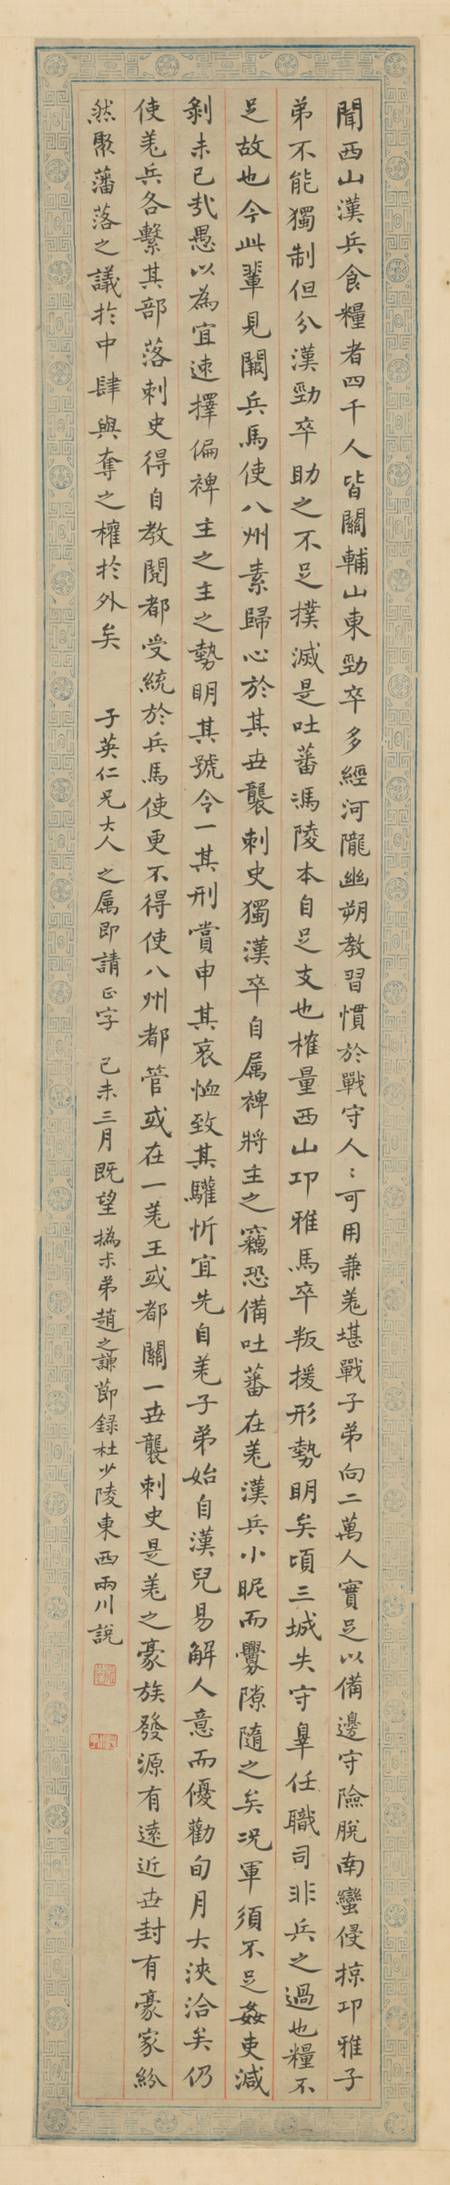 聞西山漢兵食糧者四千人皆關輔山東勁卒多經河隴幽朔教習慣於戰守人〻可用兼羌堪戰子弟向二萬人實足以備邊守險脫南蠻侵掠邛雅子
弟不能獨制但分漢勁卒助之不足撲滅是吐蕃馮陵本自足支也榷量西山邛雅馬卒叛援形勢明矣頃三城失守辠任職司非兵之過也糧不
足故也今此輩見闕兵馬使八州素歸心於其世襲刺史獨漢卒自属裨將主之竊恐備吐蕃在羌漢兵小昵而釁隙隨之矣况軍須不足姦吏減
剝未已哉愚以為宜速擇偏裨主之主之勢明其號令一其刑賞申其哀恤致其驩忻宜先自羌子弟始自漢兒易解人意而優勸旬月大浹洽矣仍
使羌兵各繫其部落刺史得自教閱都受統於兵馬使更不得使八州都管或在一羌王或都關一世襲刺史是羌之豪族發源有遠近世封有豪家紛
然聚藩落之議於中肆與奪之權於外矣 子英仁兄大人之属即請正字 己未三月既望撝尗弟趙之謙節錄杜少陵東西兩川說